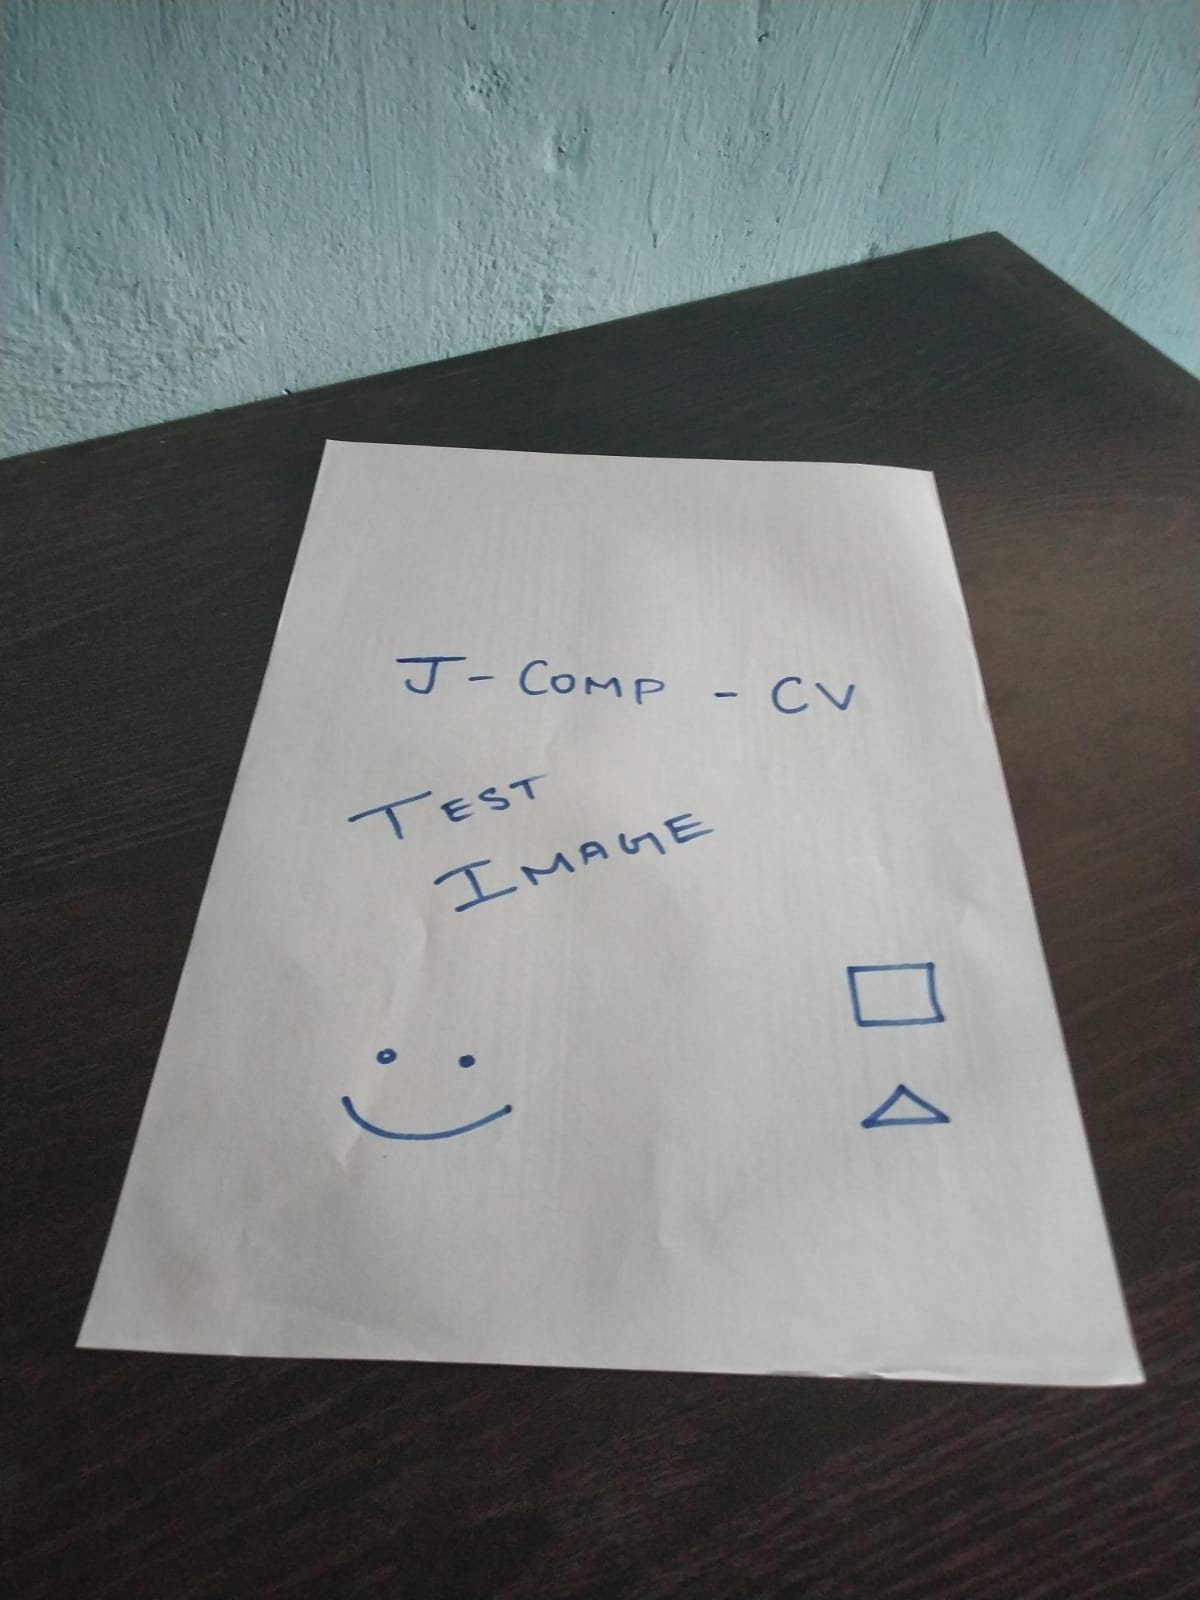 J - COMP - CV
TEST
IMAGE